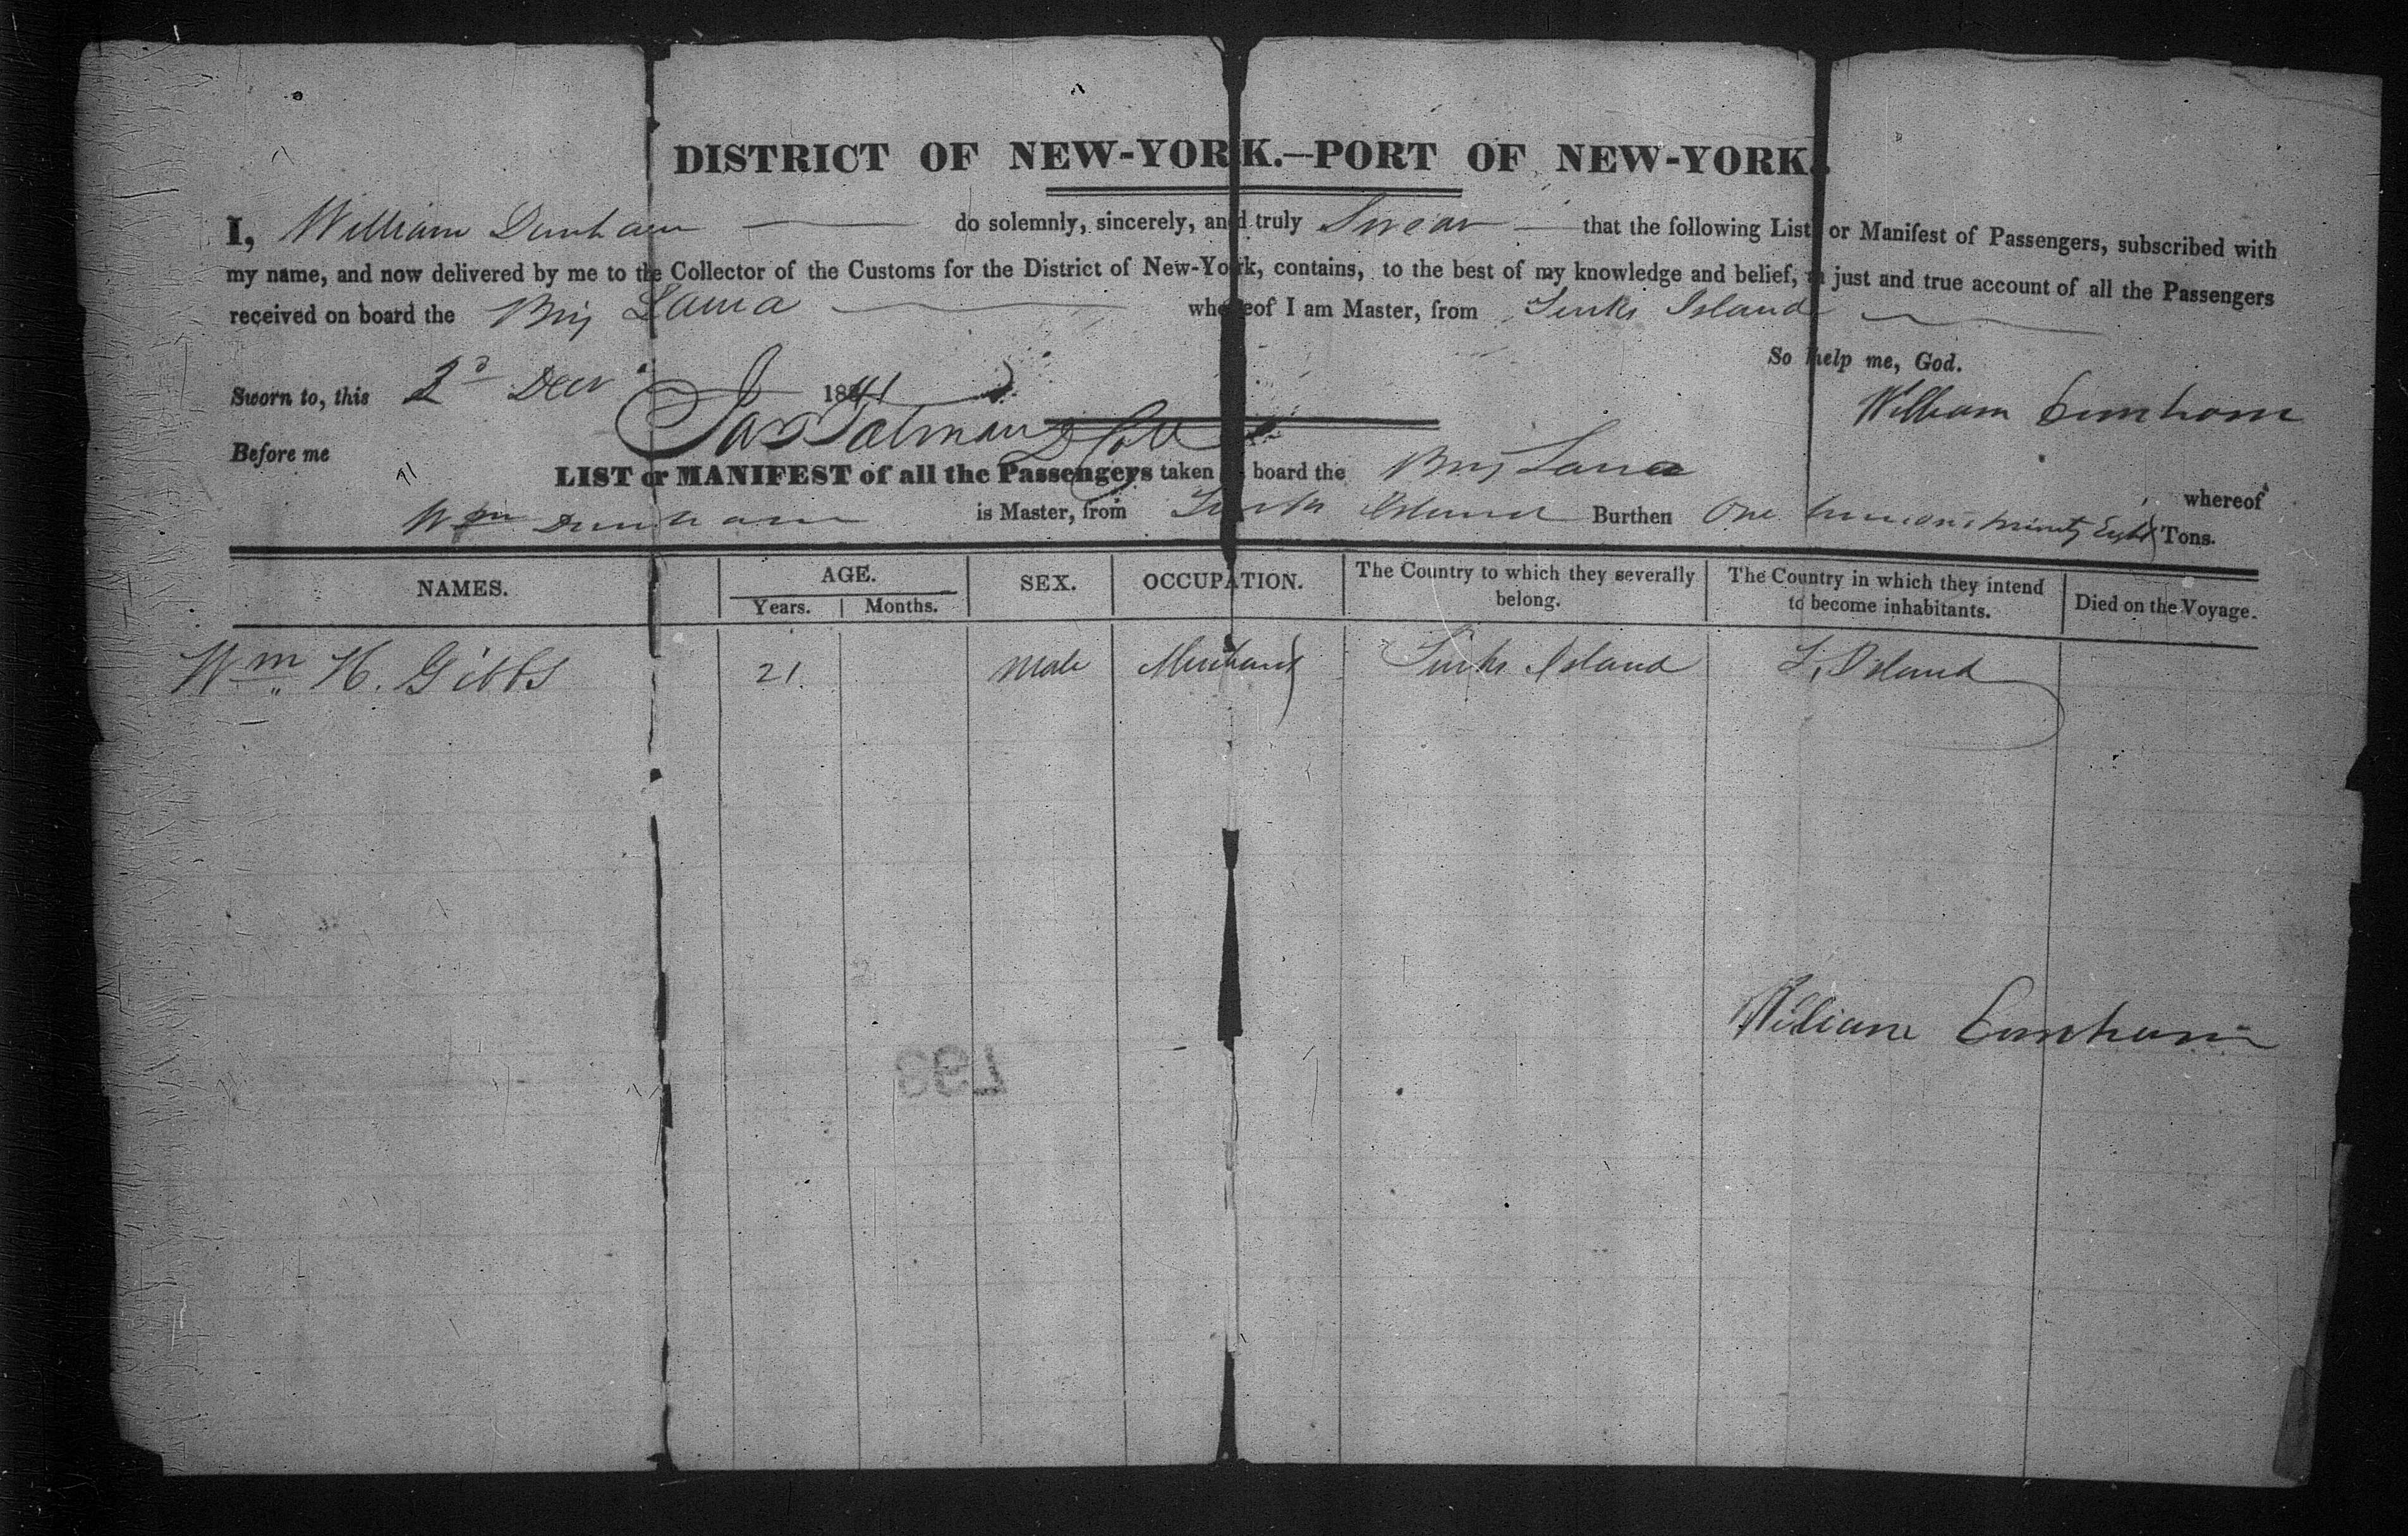 DISTRICT OF NEW-YORK.—PORT OF NEW-YORK.
I, William Dunham do solemnly, sincerely, and truly Swear that the following List or Manifest of Passengers, subscribed with
my name, and now delivered by me to the Collector of the Customs for the District of New-York, contains, to the best of my knowledge and belief, a just and true account of all the Passengers
received on board the Brig Laura whereof I am Master, from Turks Island
So help me, God.
Sworn to, this 2d Decr 1841
William Dunham
Before me Jas Talman D Coll
LIST or MANIFEST of all the Passengers taken board the Brig Laura whereof
Wm Dunham is Master, from Turks Island Burthen One hundred Ninety Eight Tons.
NAMES. AGE. SEX. OCCUPATION. The Country to which they severally belong. The Country in which they intend to become inhabitants. Died on the Voyage.
Years. Months.
Wm H. Gibbs 21 Male Merchant Turks Island T, Island
William Dunham